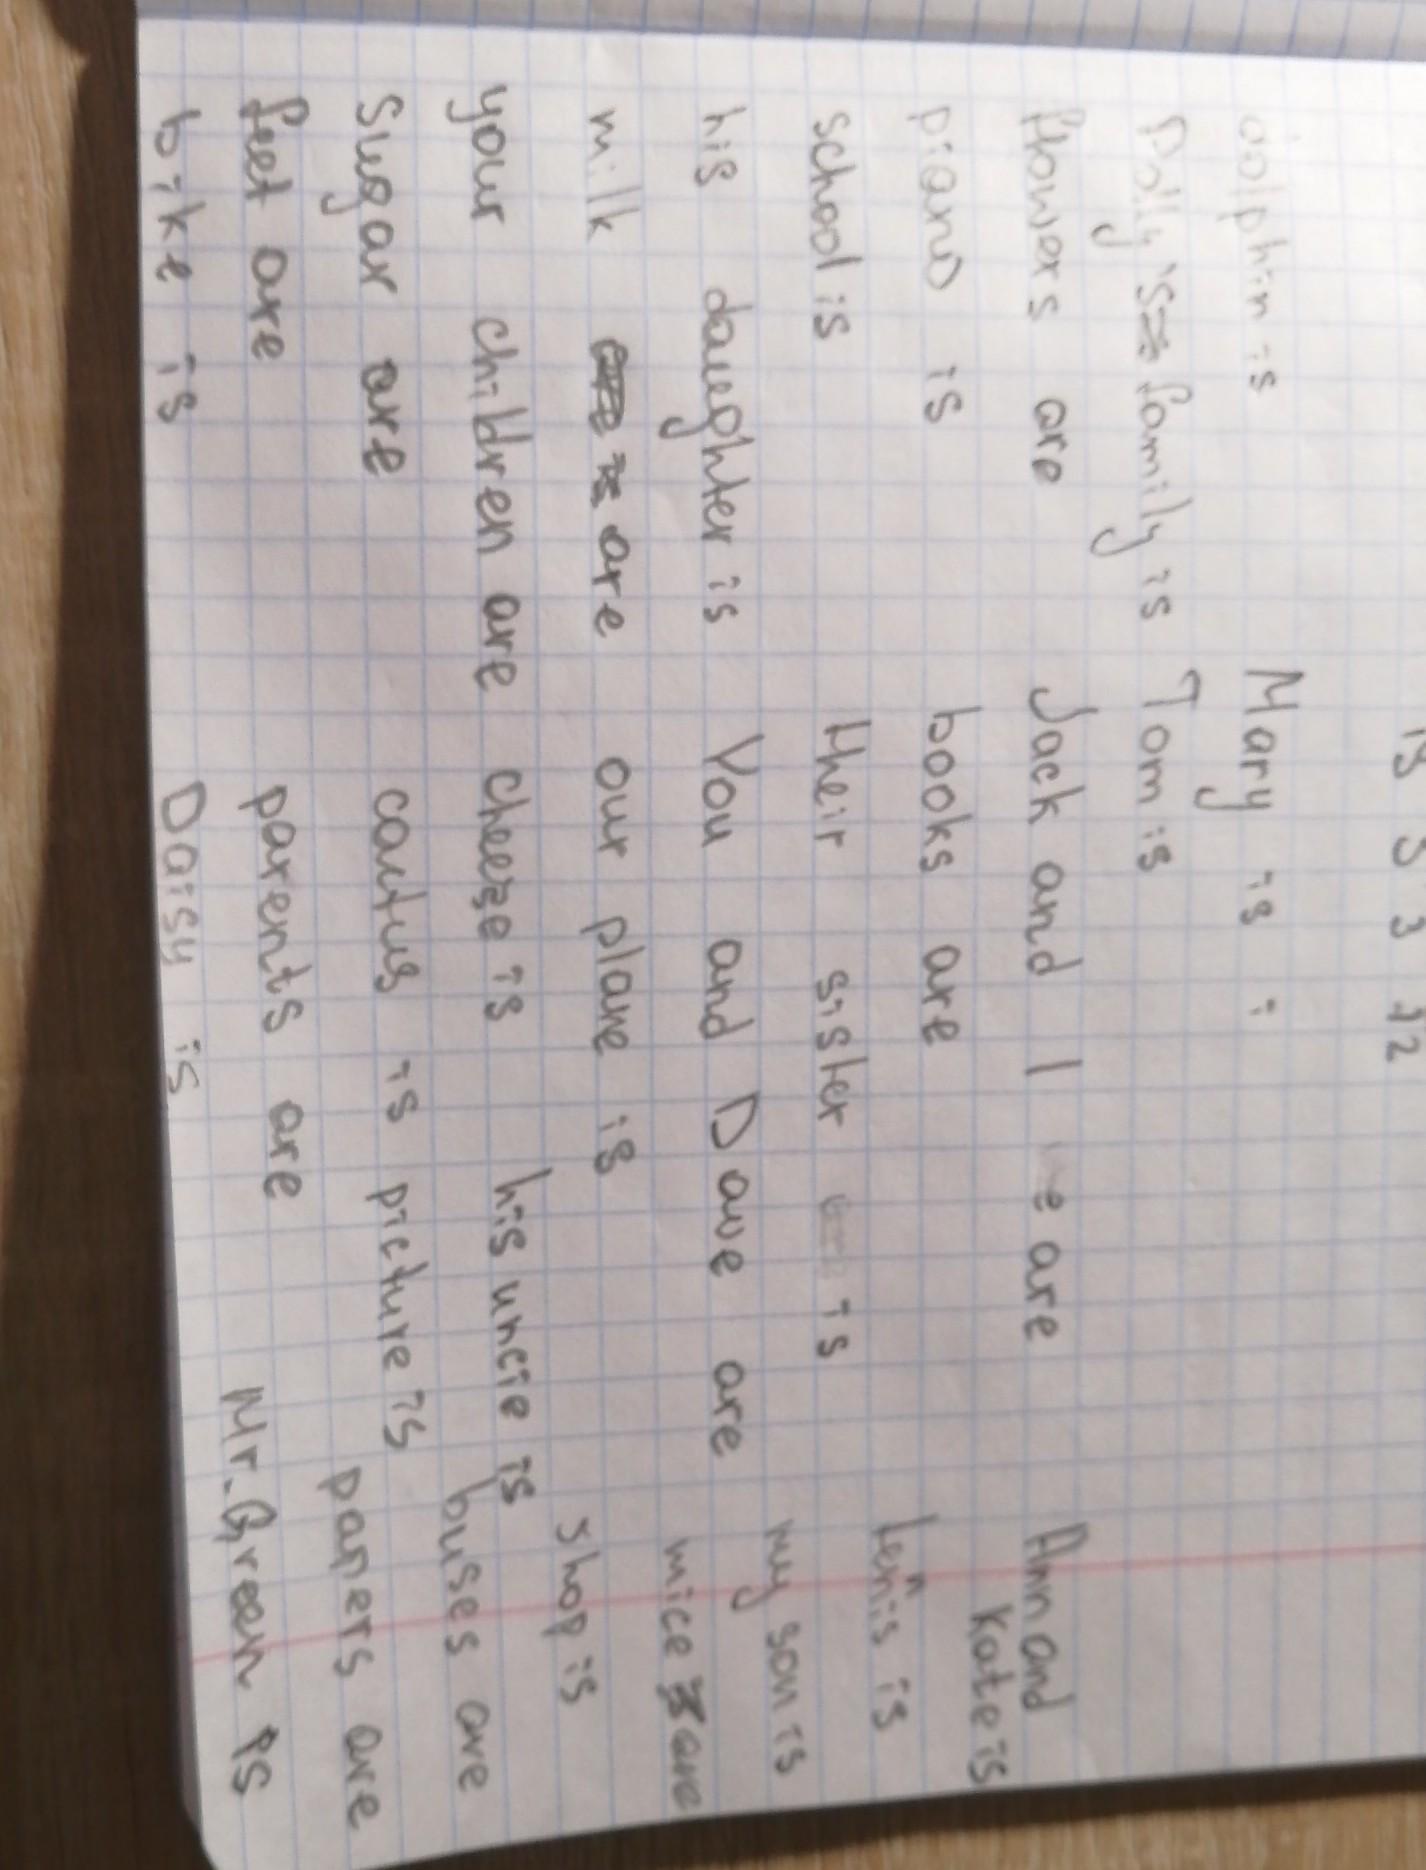 13 3 3 12
dolphin is Mary is
Dolly's family is Tom is
flowers are Jack and I are Ann and
piano is books are Kate is
school is their sister is Lenis is
his daughter is You and Dave are my son is
milk are our plane is mice are
your children are cheese is his uncle is shop is
Sugar are cactus is picture is buses are
feet are parents are papers are
bike is Daisy is Mr. Green is